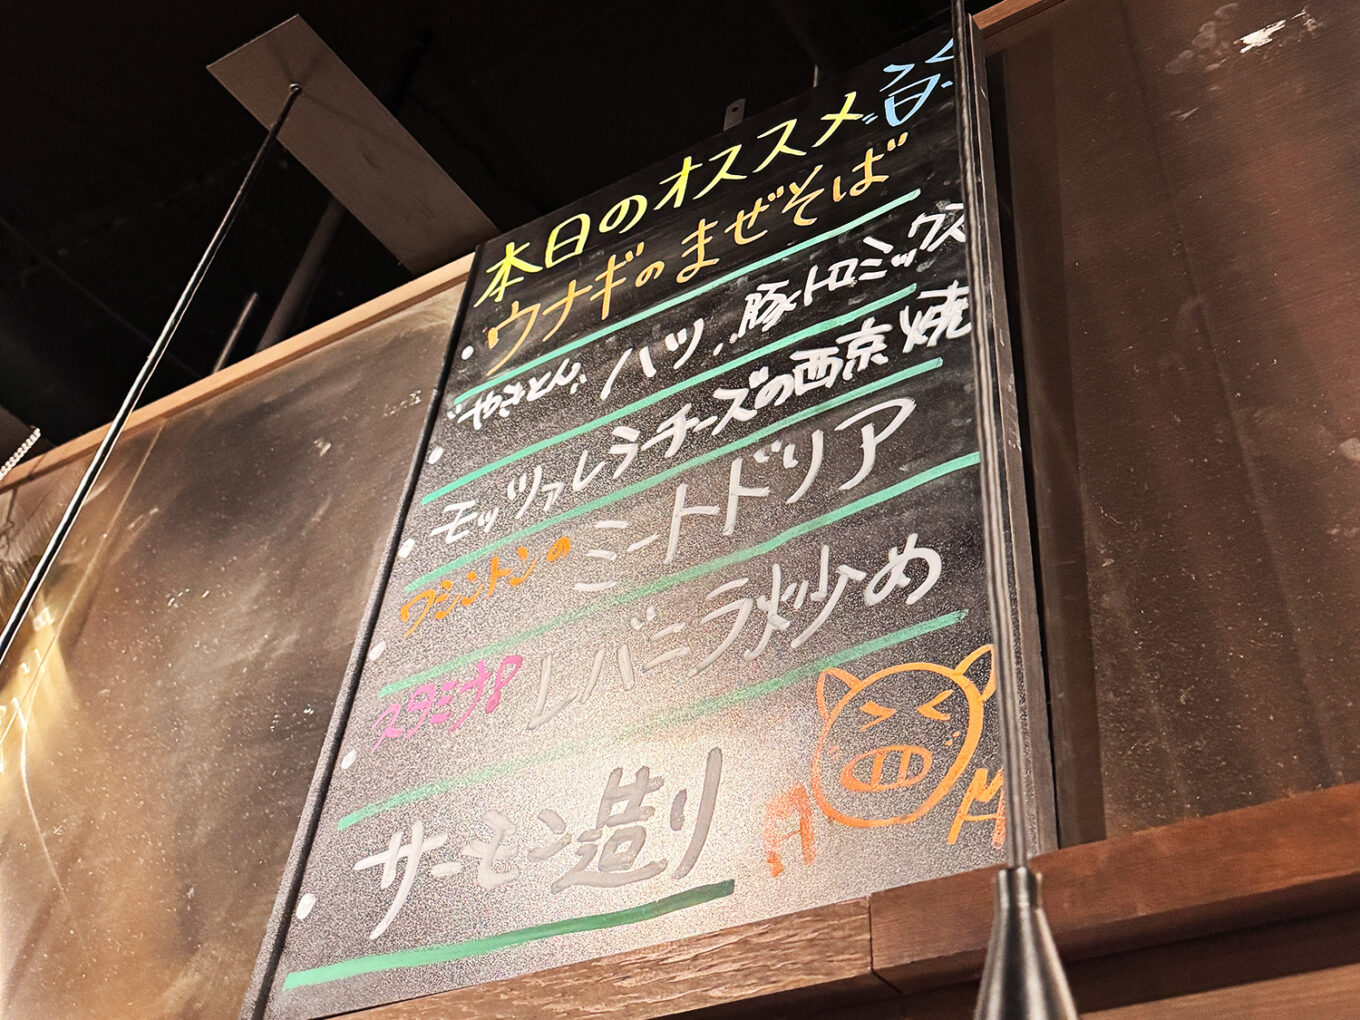 本日のオススメ
ウナギのまぜそば
やきとん ハツ、豚トロミックス
モッツァレラチーズの西京焼
ワシントンの ミートドリア
スタミナ レバニラ炒め
サーモン造り